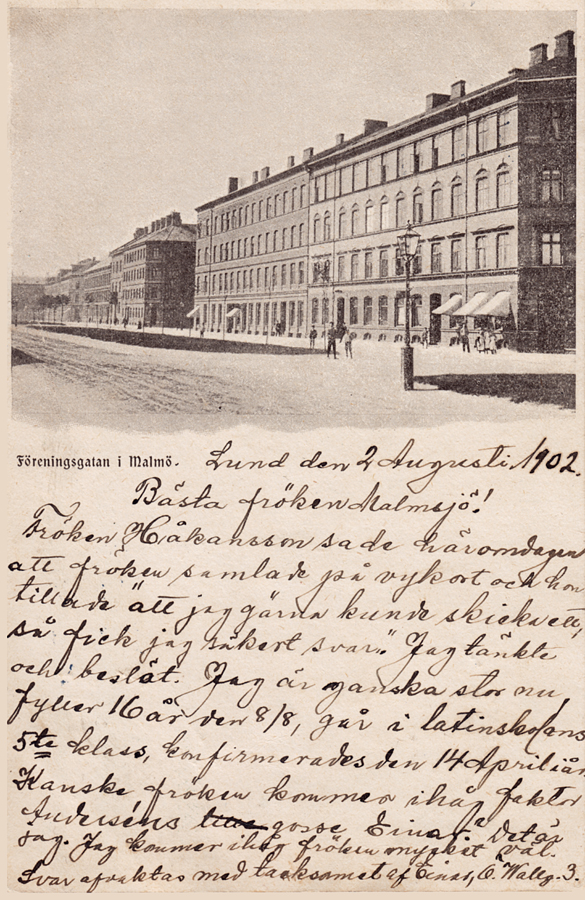 Föreningsgatan i Malmö.
Lund den 2 Augusti 1902.
Bästa fröken Malmsjö!
Fröken Håkansson sade häromdagen
att fröken samlade på vykort och hon
tillade "att jag gärna kunde skicka ett,
så fick jag säkert svar." Jag tänkte
och beslöt. Jag är ganska stor nu,
fyller 16 år den 8/8, går i latinskolans
5te klass, konfirmerades den 14 April i år.
Kanske fröken kommer ihåg faktor
Anderséns gosse Einar? Det är
jag. Jag kommer ihåg fröken mycket väl.
Svar afvaktas med tacksamet af Einar, Ö. Vallg. 3.